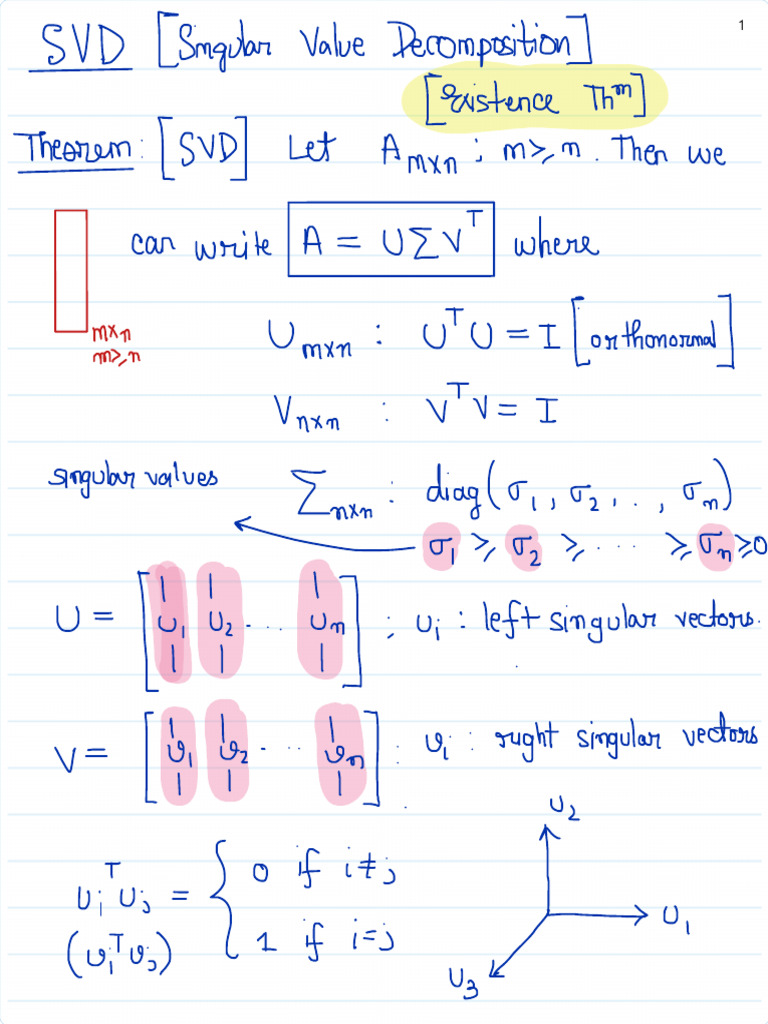 1
SVD [Singular Value Decomposition]
[Existence Thᵐ]
Theorem: [SVD] Let Aₘₓₙ ; m ≥ n. Then we
can write A = UΣVᵀ where
m×n
m ≥ n
Uₘₓₙ : UᵀU = I [orthonormal]
Vₙₓₙ : VᵀV = I
singular values
Σₙₓₙ : diag(σ₁, σ₂, . . , σₙ)
σ₁ ≥ σ₂ ≥ . . . . ≥ σₙ ≥ 0
U = [u₁ u₂ . . . uₙ] ; uᵢ : left singular vectors.
V = [v₁ v₂ . . . vₙ] : vᵢ : right singular vectors
uᵢᵀuⱼ = { 0 if i ≠ j
(vᵢᵀvⱼ) 1 if i = j
U₂
U₁
U₃